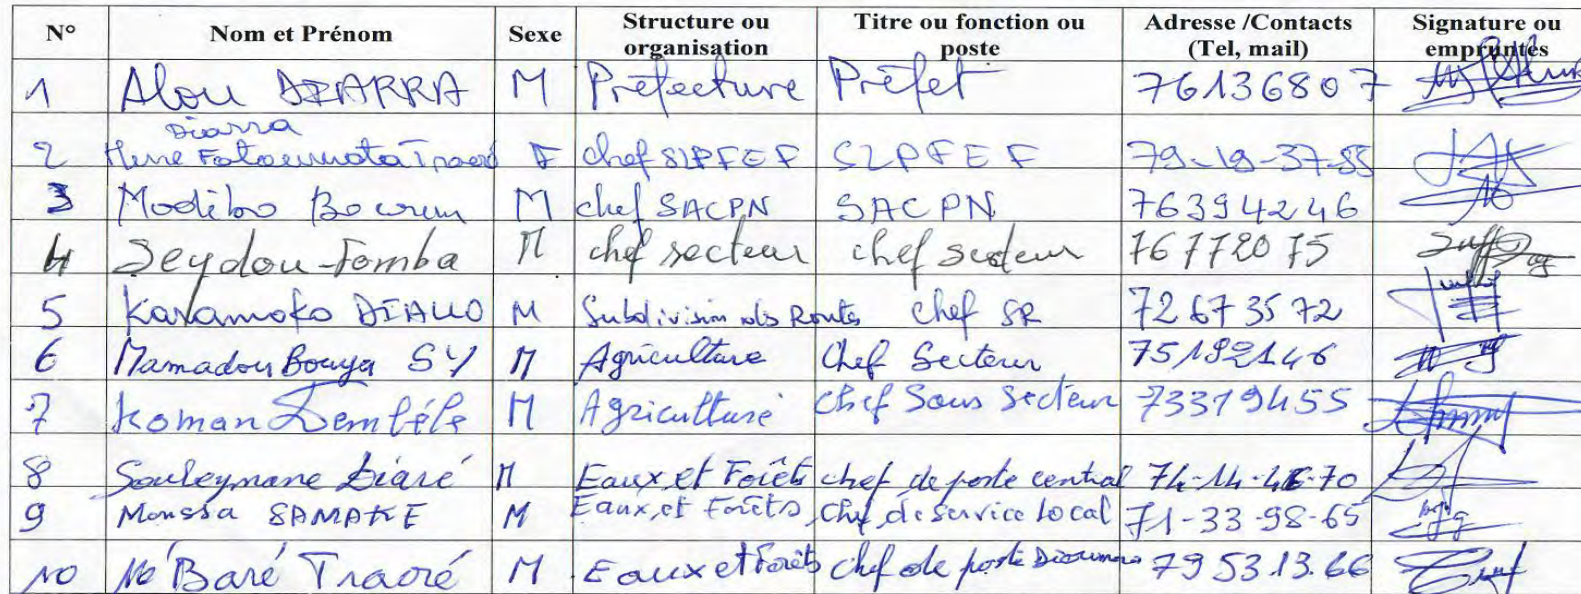 N° Nom et Prénom Sexe Structure ou organisation Titre ou fonction ou poste Adresse /Contacts (Tel, mail) Signature ou empruntés
1 Alou DIARRA M Préfecture Préfet 76136807
Diarra
2 Mme Fatoumata Traoré F chef SLPFEF SLPFEF 79-19-37-55
3 Modibo Bocoum M chef SACPN SACPN 76394246
4 Seydou Fomba M chef secteur chef secteur 76772075
5 Karamoko DIALLO M Subdivision des Routes chef SR 72673572
6 Mamadou Bouya SY M Agriculture Chef Secteur 75192146
7 Koman Dembélé M Agriculture Chef Sous Secteur 73319455
8 Souleymane Diaré M Eaux et Forêts chef de poste central 74-14-46-70
9 Moussa SAMAKE M Eaux et Forêts Chef de service local 71-33-98-65
10 Baré Traoré M Eaux et Forêts chef de poste 79 53.13.66